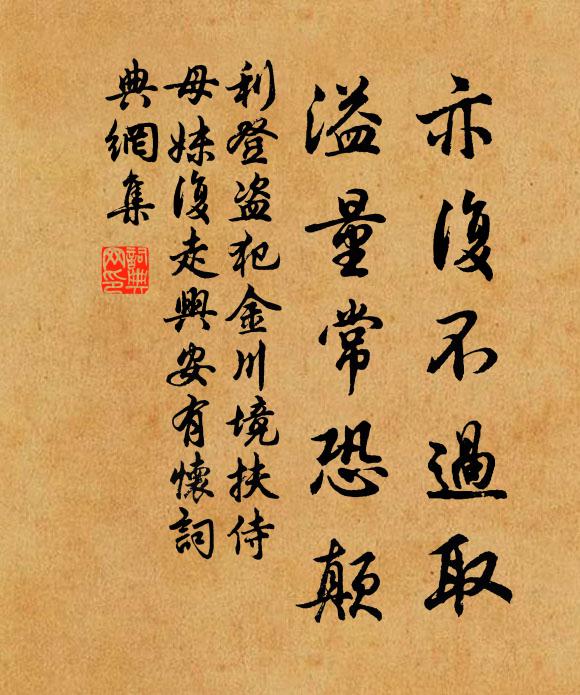 亦復不過取
溢量常恐顛
利登盗犯金川境扶侍
母妹復走興安有懷詞
典網集
詞典
网印